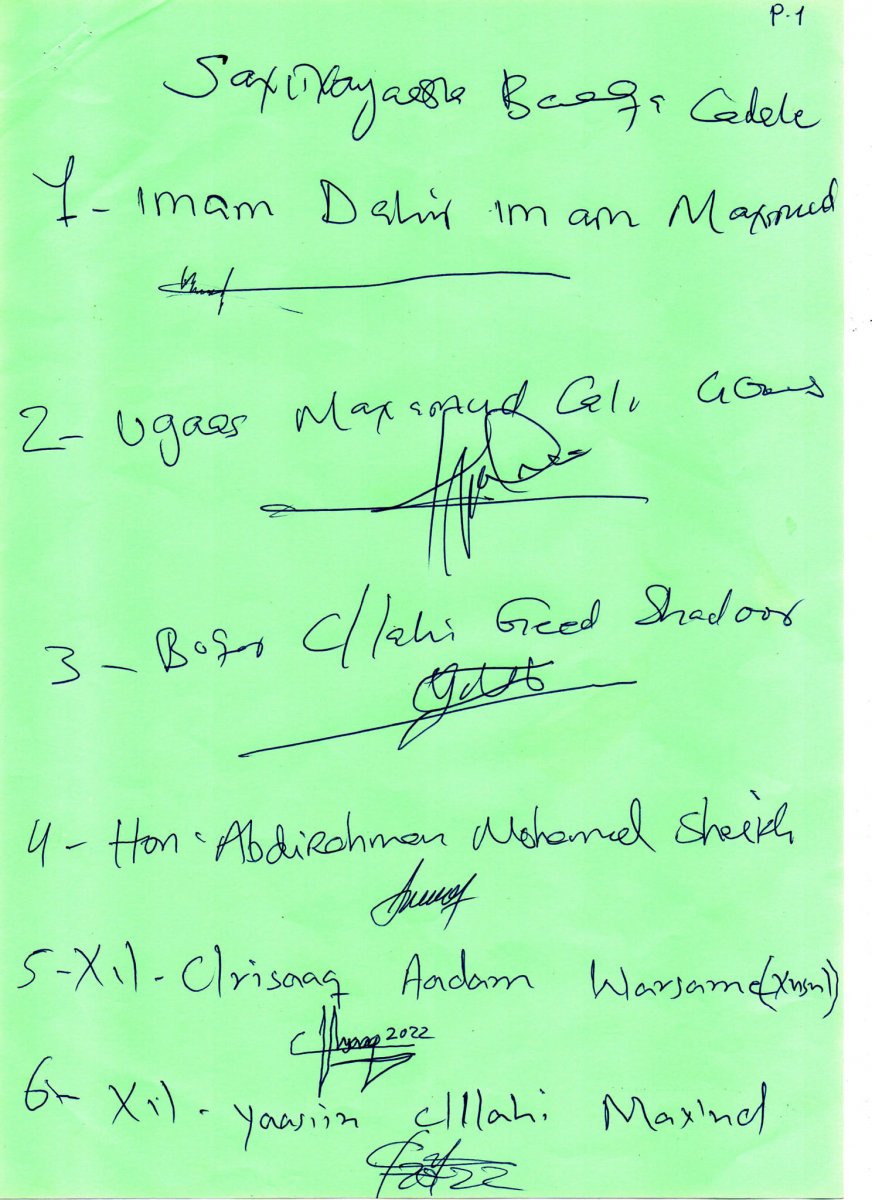 P.1
Saxiixayaasha Beesha Cadde
1- imam Dahir imam Maxmud
2- Ugaas Maxamuud Celi
3- Boqor C/lahi Geed Shadoor
4- Hon: AbdiRahman Mohamed Sheikh
5-Xil- C/risaaq Aadam Warsame
2022
6- Xil- yaasiin C/llahi